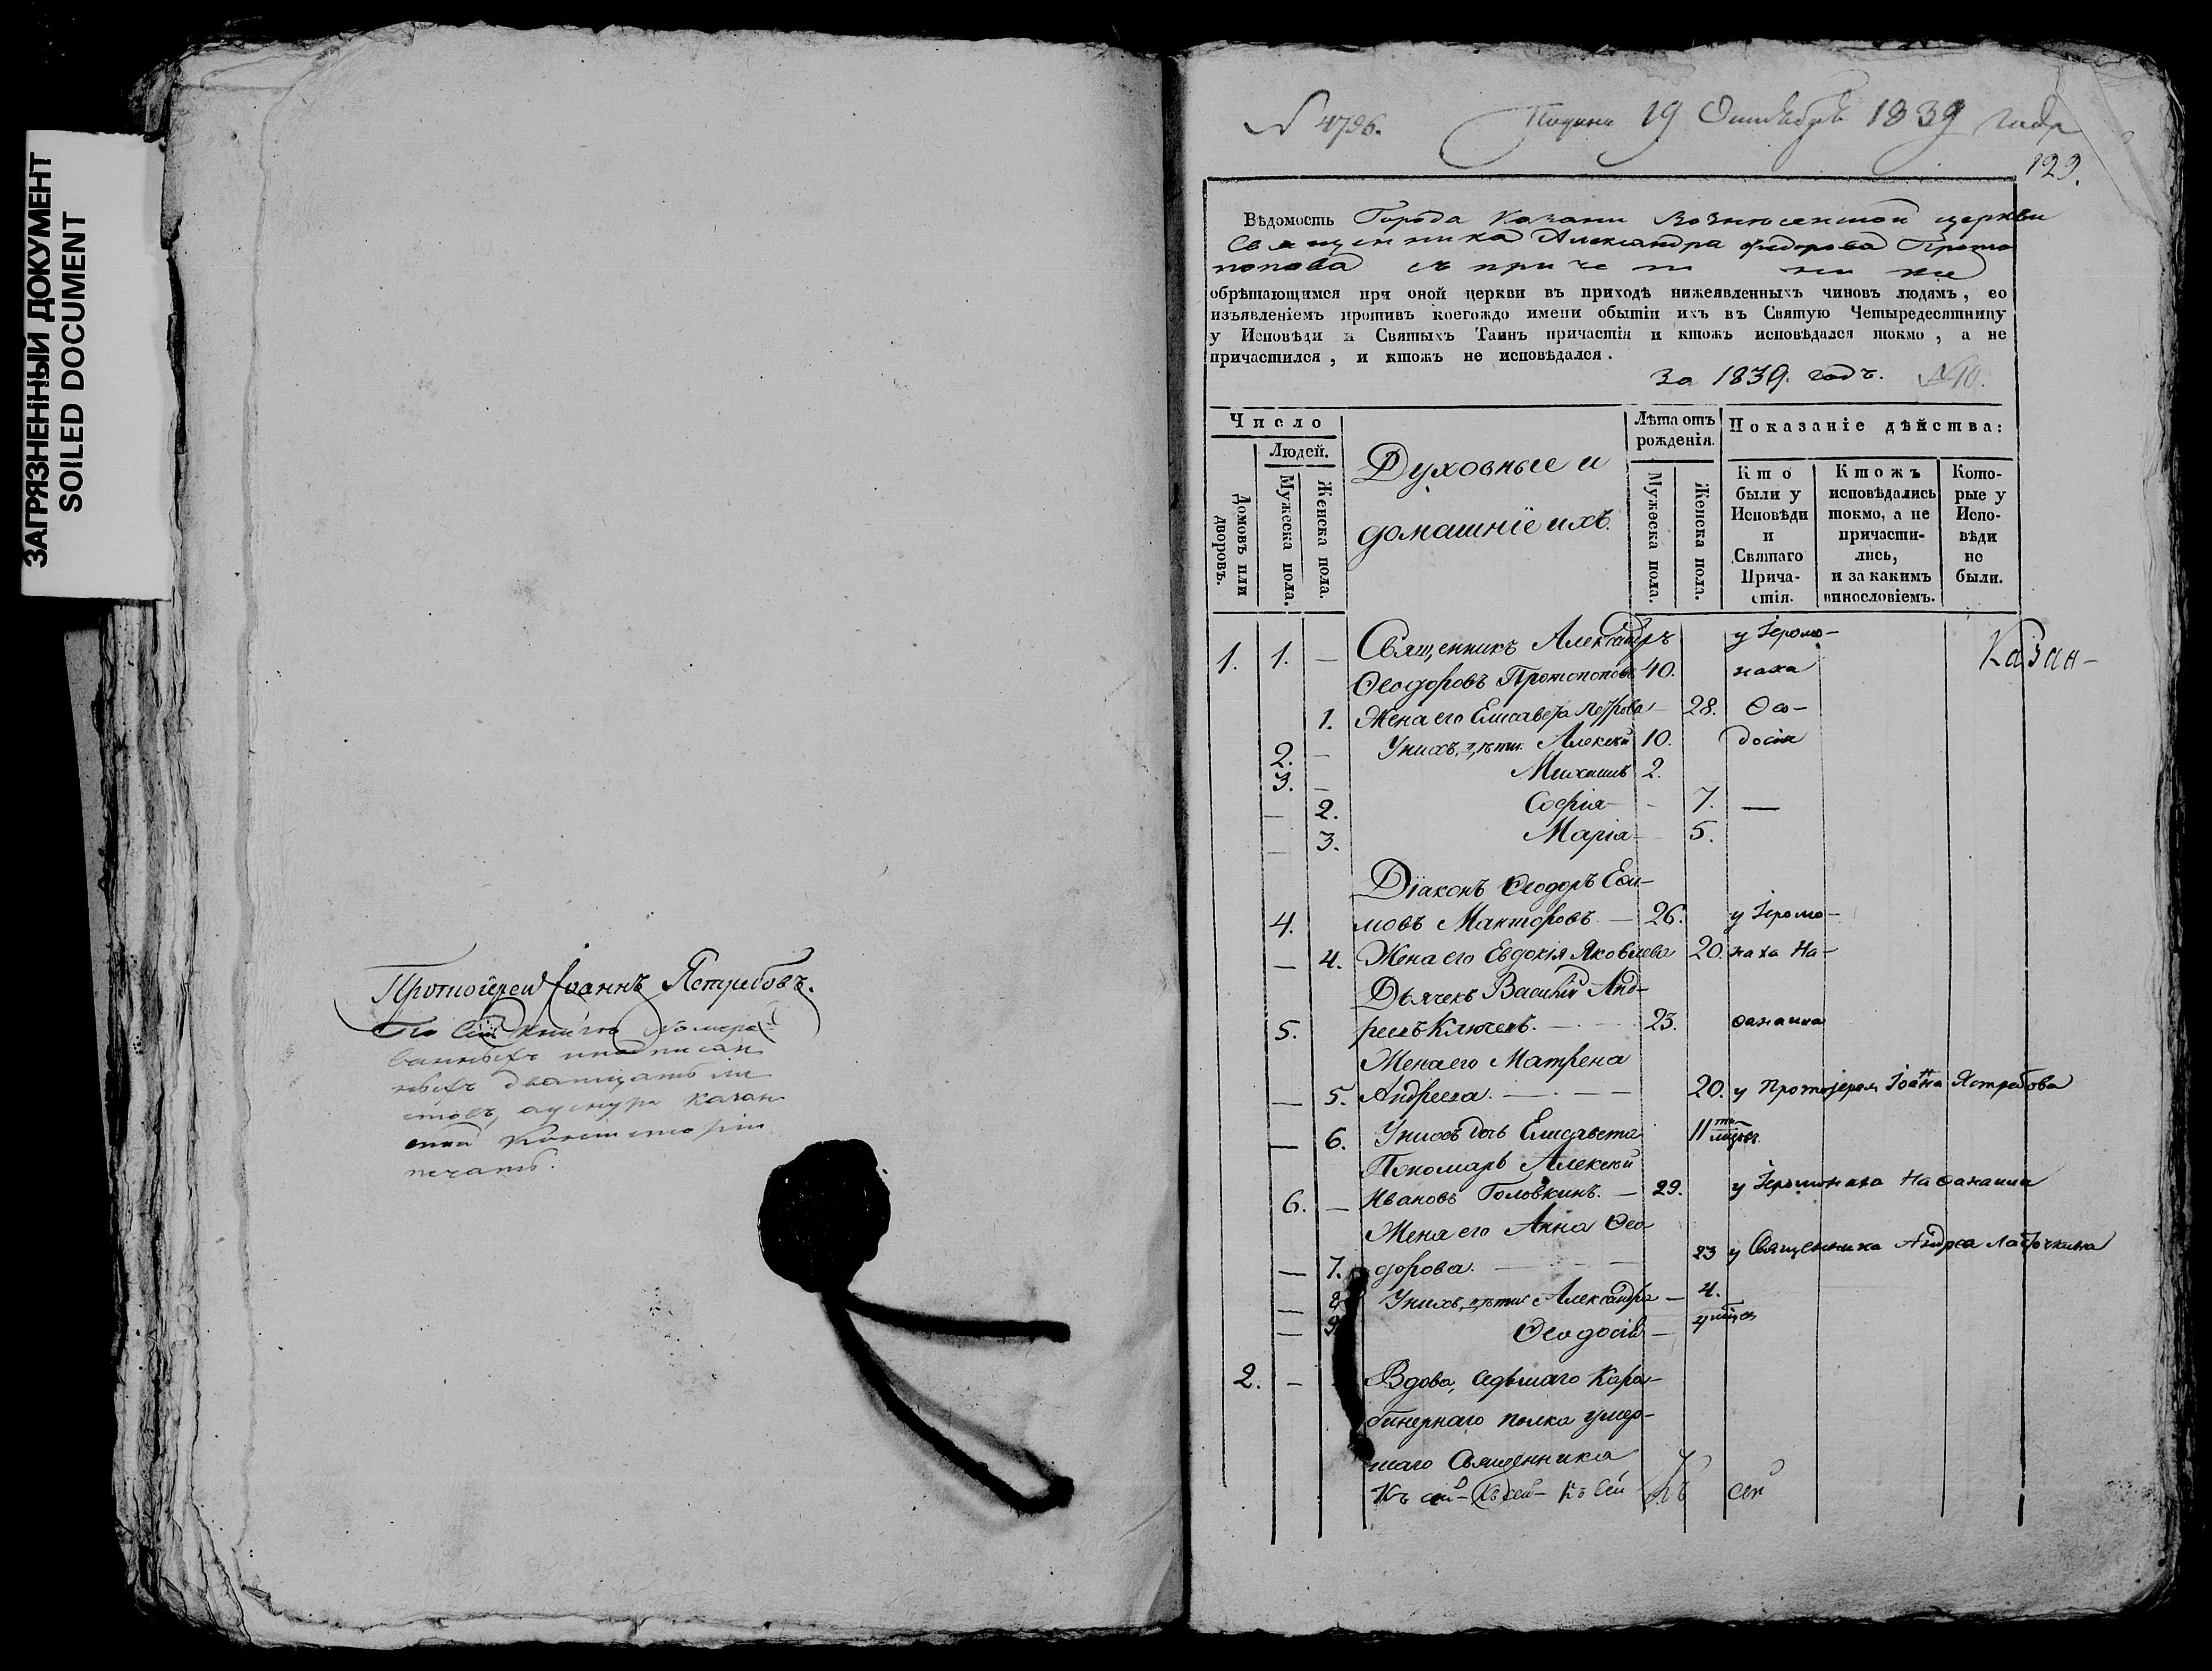 ЗАГРЯЗНЕННЫЙ ДОКУМЕНТ
SOILED DOCUMENT
Протоіерей Іоаннъ Ястребовъ.
листовъ
Казан-
ской
печать.
N 4796.
19 Октября 1839 года
129.
Вѣдомость Города Казани Вознесенской церкви
Священника Александра Федорова Прото
попова съ причетники
обрѣтающимся при оной церкви въ приходѣ нижеявленныхъ чиновъ людямъ, со
изъявленіемъ противъ коегождо имени обытіи ихъ въ Святую Четыредесятницу
у Исповѣди и Святыхъ Таинъ причастія и ктожъ исповѣдался токмо, а не
причастился, и ктожъ не исповѣдался.
за 1839. годъ. N 10.
Число
Людей.
Домовъ или дворовъ.
Мужеска пола.
Женска пола.
Духовные и
домашніе ихъ.
Лѣта отъ
рожденія.
Мужеска пола.
Женска пола.
Показаніе дѣйства:
Кто были у Исповѣди и Святаго Прича-стія.
Ктожъ исповѣдались токмо, а не причасти-лись, и за какимъ винословіемъ.
Кото-рые у Испо-вѣди не были.
1. 1. — Священникъ Александръ у Іеромо-
Ѳеодоровъ Протопоповъ 40. наха
Казан-
1. Жена его Елисавета Петрова — 28. Ѳео-
2. — У нихъ дѣти Алексѣй 10. досія
3. — Михаилъ 2.
— 2. Софія — 7. —
— 3. Марія — 5.
Діаконъ Ѳеодоръ Ефи-
4. мовъ Манторовъ — 26. у Іеромо-
— 4. Жена его Евдокія Яковлева 20. наха На-
Дьячекъ Василій Анд-
5. реевъ Ключевъ. — 23. ѳанаила
Жена его Матрена
— 5. Андреева. — 20. у Протоіерея Іоанна Ястребова
— 6. У нихъ дочь Елисавета 11
Пономарь Алексѣй
6. — Ивановъ Головкинъ. — 29. у Іеромонаха Наѳанаила
Жена его Анна Ѳео-
— 7. дорова. — 23 у Священника Андрея
— 8 У нихъ дѣти Александра — 4.
— 9 Ѳеодосія —
2. — Вдова, седьмаго Кара-
бинернаго полка умер-
шаго Священника
Къ сей — Къ сей — Къ сей Къ сей